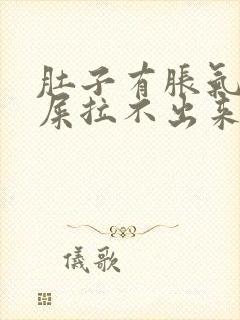 肚子有脹氣
屎拉不出來
儀歌